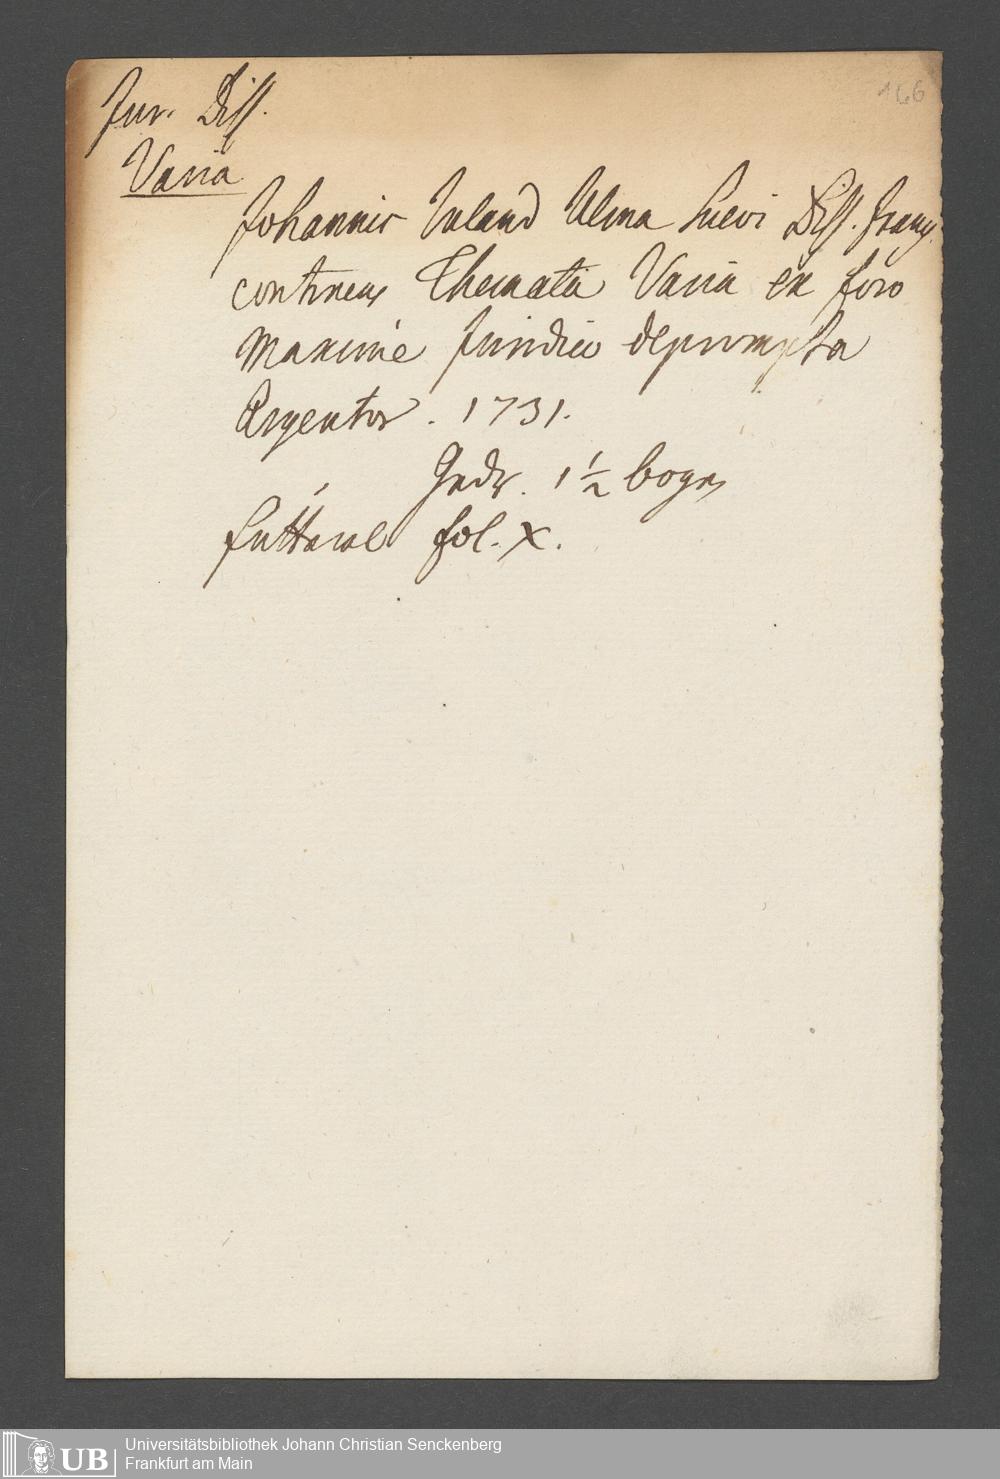 Jur. Diss.
166
Varia
Johannis Ulma Suevi Diss. Inaug.
continens Themata Varia ex foro
Maximé Juridico deprompta
Argentor. 1731.
Gedr. 1 1/2 bogen
futteral fol. X.
UB
Universitätsbibliothek Johann Christian Senckenberg
Frankfurt am Main